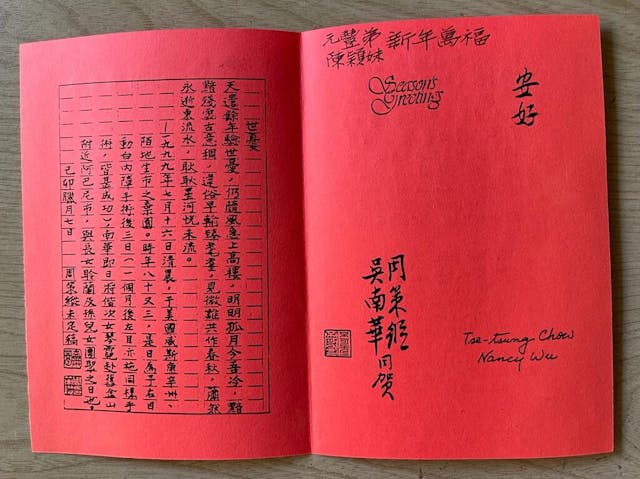 世憂
天遣餘年驗世憂，仍隨風急上高樓，明明孤月今吾冷，黯
黯殘雲古意稠，違俗早輸臻老耄，見微難共作春秋，蕭然
永逝東流水，耿耿星河恍未流。
一九九九年七月十六日清晨，于美國威斯康辛州、
陌地生市之棄園。時年八十又三，是日為予右目
動白內障手術後三日（一個月後左目亦施同樣手
術，皆甚成功），南華即日將偕次女琴霓赴舊金山
附近阿巴尼市，與長女聆蘭及孫兒女團聚之日也，
己卯臘月七日 周策縱未定稿
元豐弟 新年萬福
陳穎妹
Season's
Greetings
安好
周策縱
吳南華同賀
Tse-tsung Chow
Nancy Wu